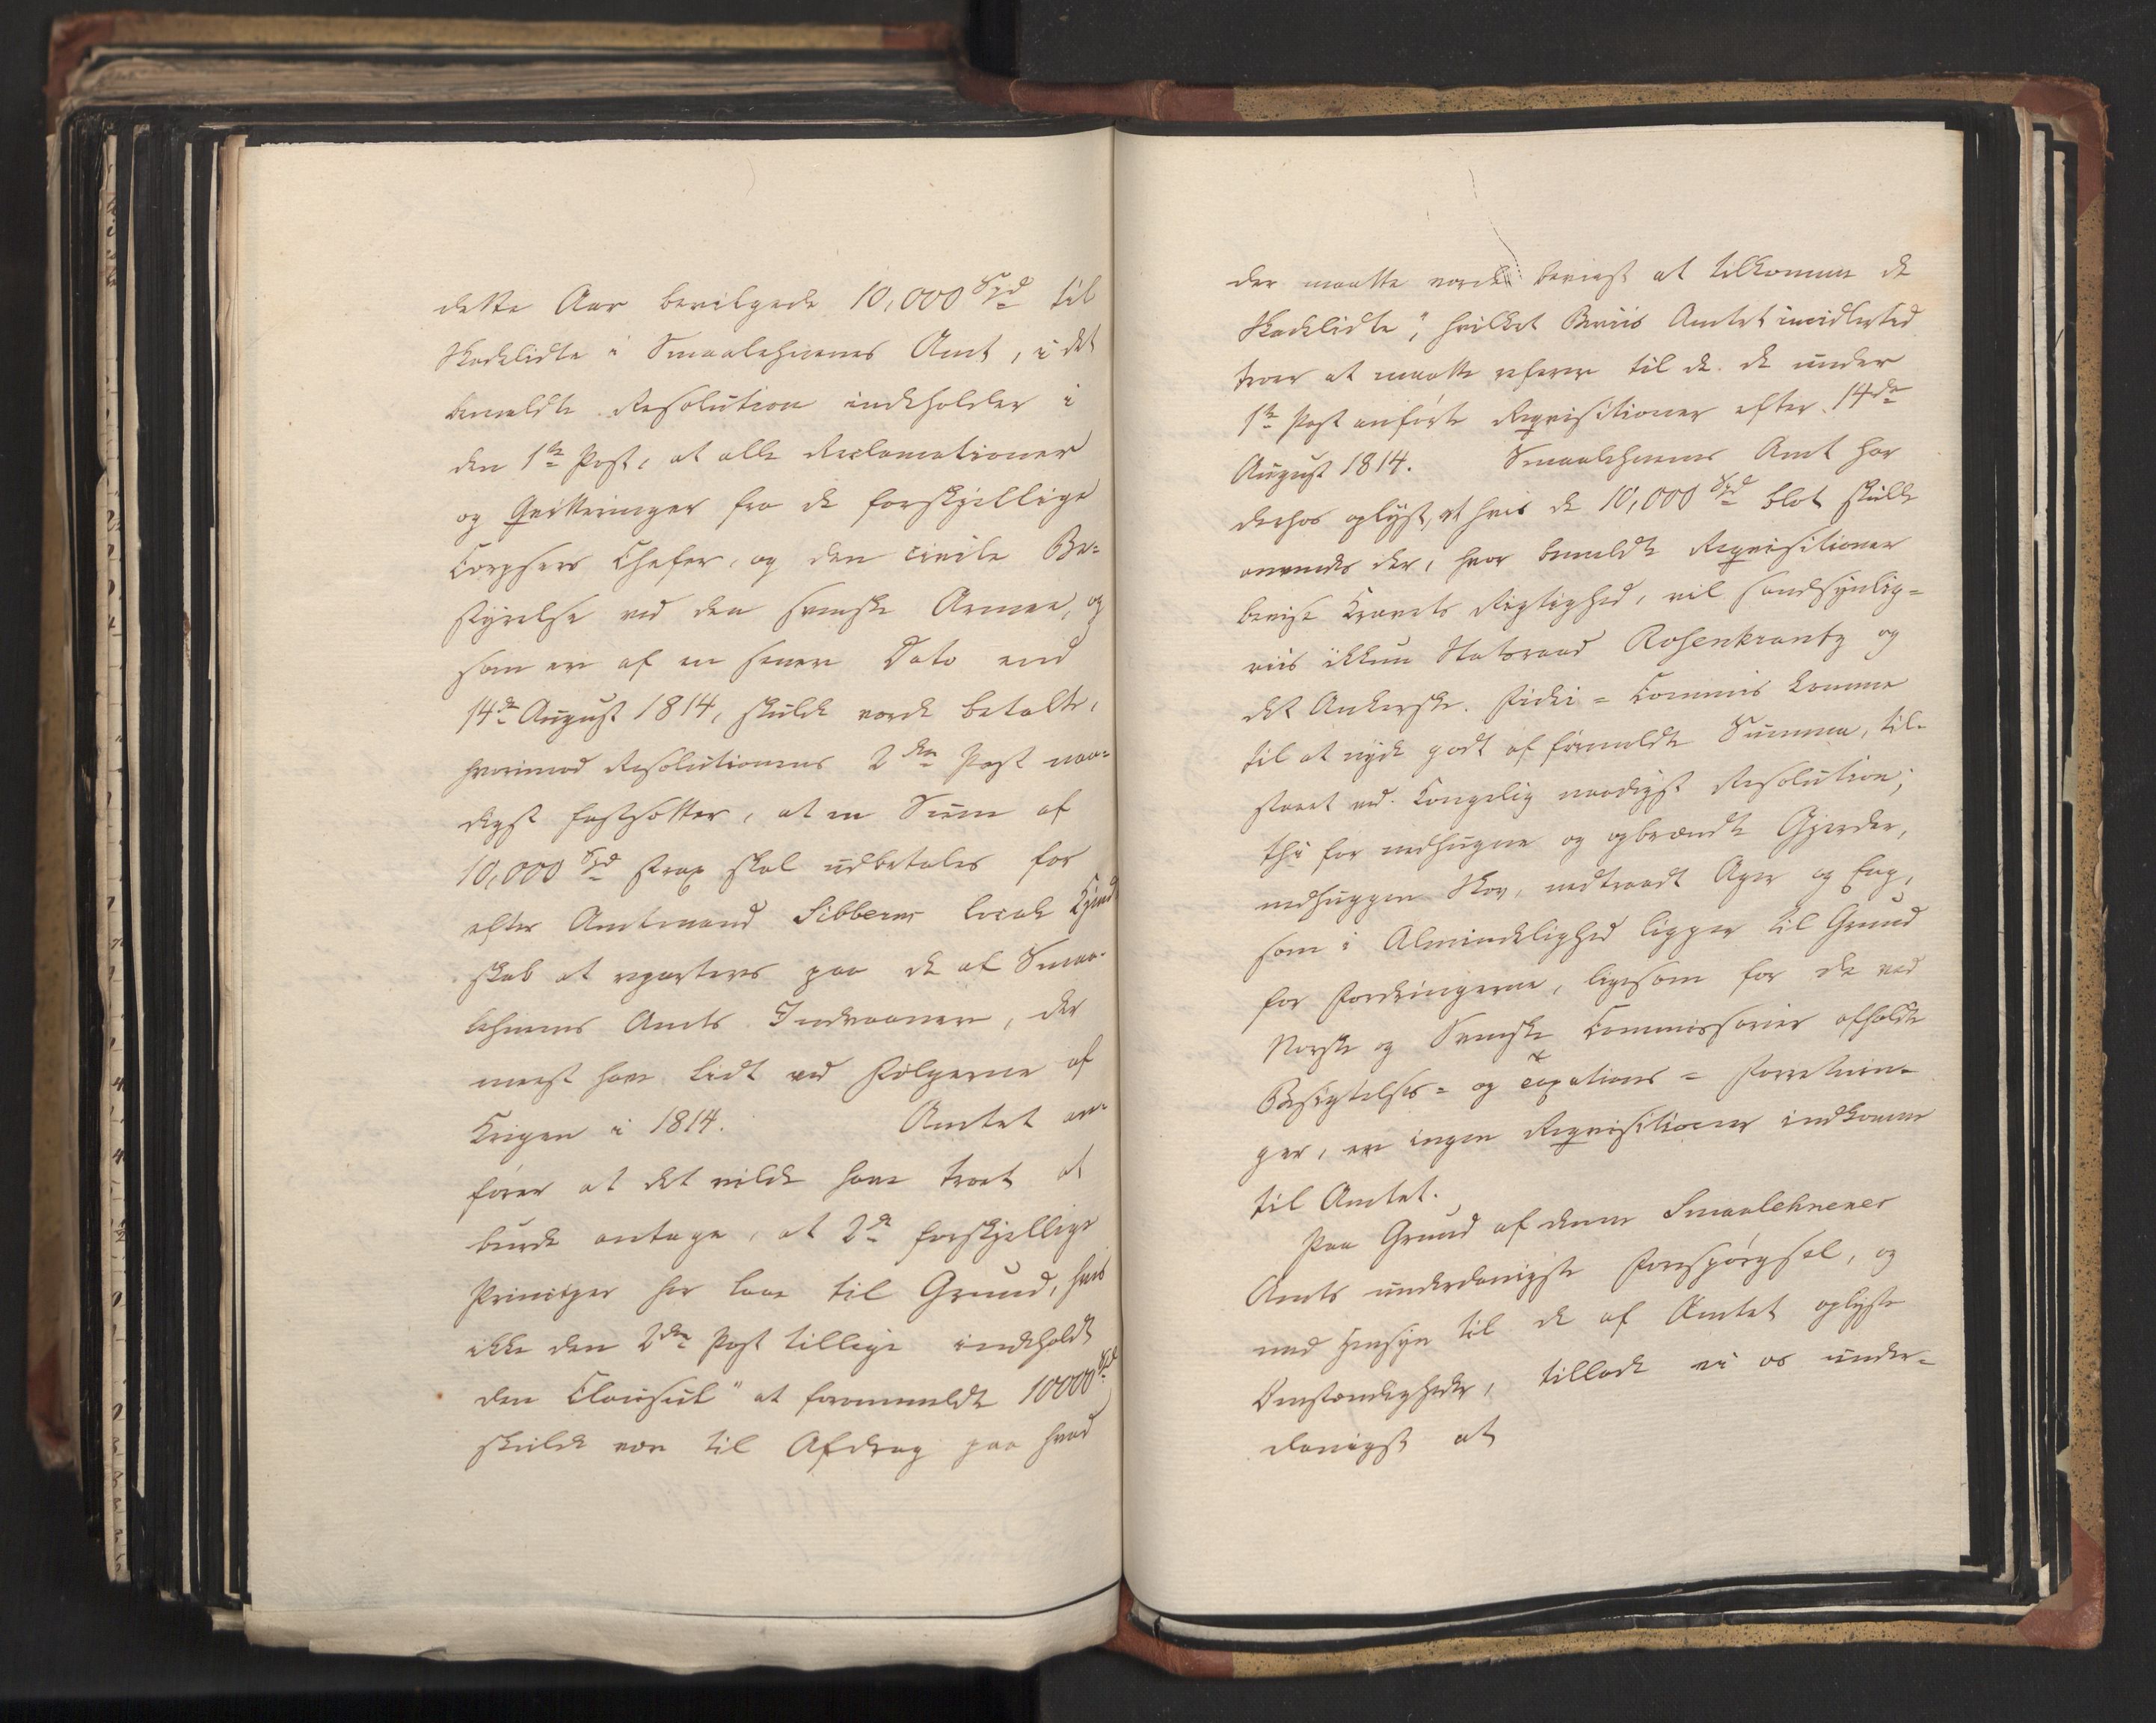 dette Aar bevilgede 10,000 Spd til
Skadelidte i Smaalehnenes Amt, i det
bemeldte Resolution indeholder i
den 1ste Post, at alle Reclamationer
og Qvitteringer fra de forskjellige
Corpsers Chefer, og den civile Be-
styrelse ved den svenske Armee, og
som ere af en senere Dato end
14de August 1814, skulde vorde betalte,
hvorimod Resolutionens 2den Post naa-
digst fastsætter, at en Sum af
10,000 Spd strax skal udbetales for
efter Amtmand Sibberns locale Kjend
skab at reparteres paa de af Smaa-
lehnenes Amts Indvaanere, der
meest have lidt ved Følgerne af
Krigen i 1814. Amtet an-
fører at det vilde have troet at
burde antage, at 2de forskjellige
Principer her laae til Grund, hvis
ikke den 2den Post tillige indeholdt
den Clausul " at forommeldte 10000 Spd
skulde være til Afdrag paa hvad
der maatte vorde beviist at tilkomme de
Skadelidte", hvilket Beviis Amtet imidlertid
troer at maatte referere til de de under
1ste Post anførte Reqvisitioner efter 14de
August 1814. Smaalehnenes Amt har
derhos oplyst, at hvis de 10,000 Spd blot skulde
anvendes der, hvor bemeldte Reqvisitioner
bevise Kravets Rigtighed, vil sandsynlig-
viis ikkun Statsraad Rosenkrantz og
det Ankerske Fidei-Commis komme
til at nyde godt afførmeldte Summa, til-
staaet ved Kongelig naadigst Resolution;
thi for nedhugne og opbrændte Gjerder,
nedhuggen Skov, nedtraadt Ager og Eng,
som i Almindelighed ligger til Grund
for Fordringerne, ligesom for de ved
Norske og Svenske Commissarier afholdte
Besigtelses- og Taxations-Forretnin-
ger, ere ingen Reqvisitioner indkomne
til Amtet.
Paa Grund af denne Smaalehnenes
Amts underdanigste Forespørgsel, og
med Hensyn til de af Amtet oplyste
Omstændigheder, tillade vi os under-
danigst at